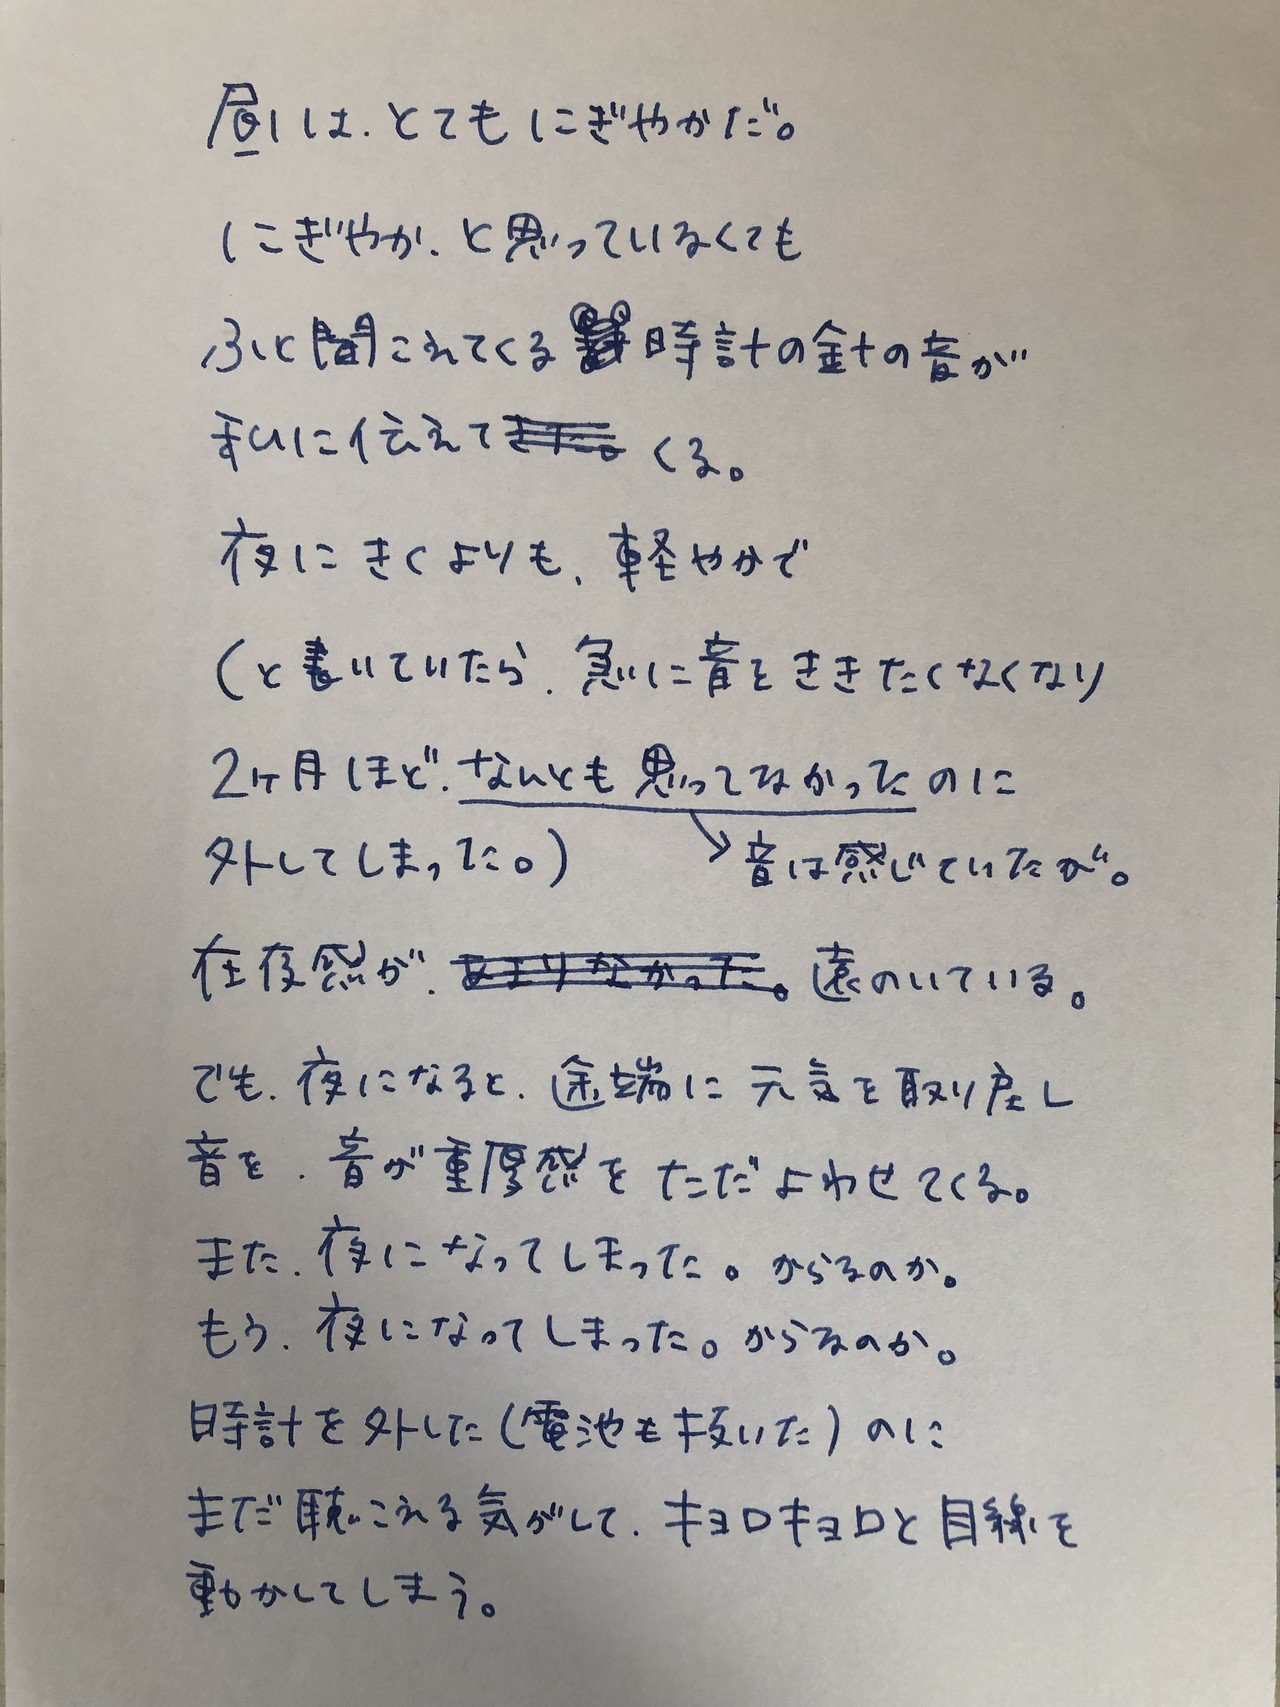 昼は、とてもにぎやかだ。
にぎやか、と思っていなくても
ふと聞こえてくる時計の針の音が
私に伝えてきた。くる。
夜にきくよりも、軽やかで
(と書いていたら、急に音をききたくなくなり
2ヶ月ほど、なんとも思ってなかったのに
外してしまった。)
音は感じていたが。
在夜感が、あまりなかった。遠のいている。
でも、夜になると、途端に元気を取り戻し
音を、音が重厚感をただよわせてくる。
また、夜になってしまった。からなのか。
もう、夜になってしまった。からなのか。
時計を外した(電池も抜いた)のに
まだ聴こえる気がして、キョロキョロと目線を
動かしてしまう。